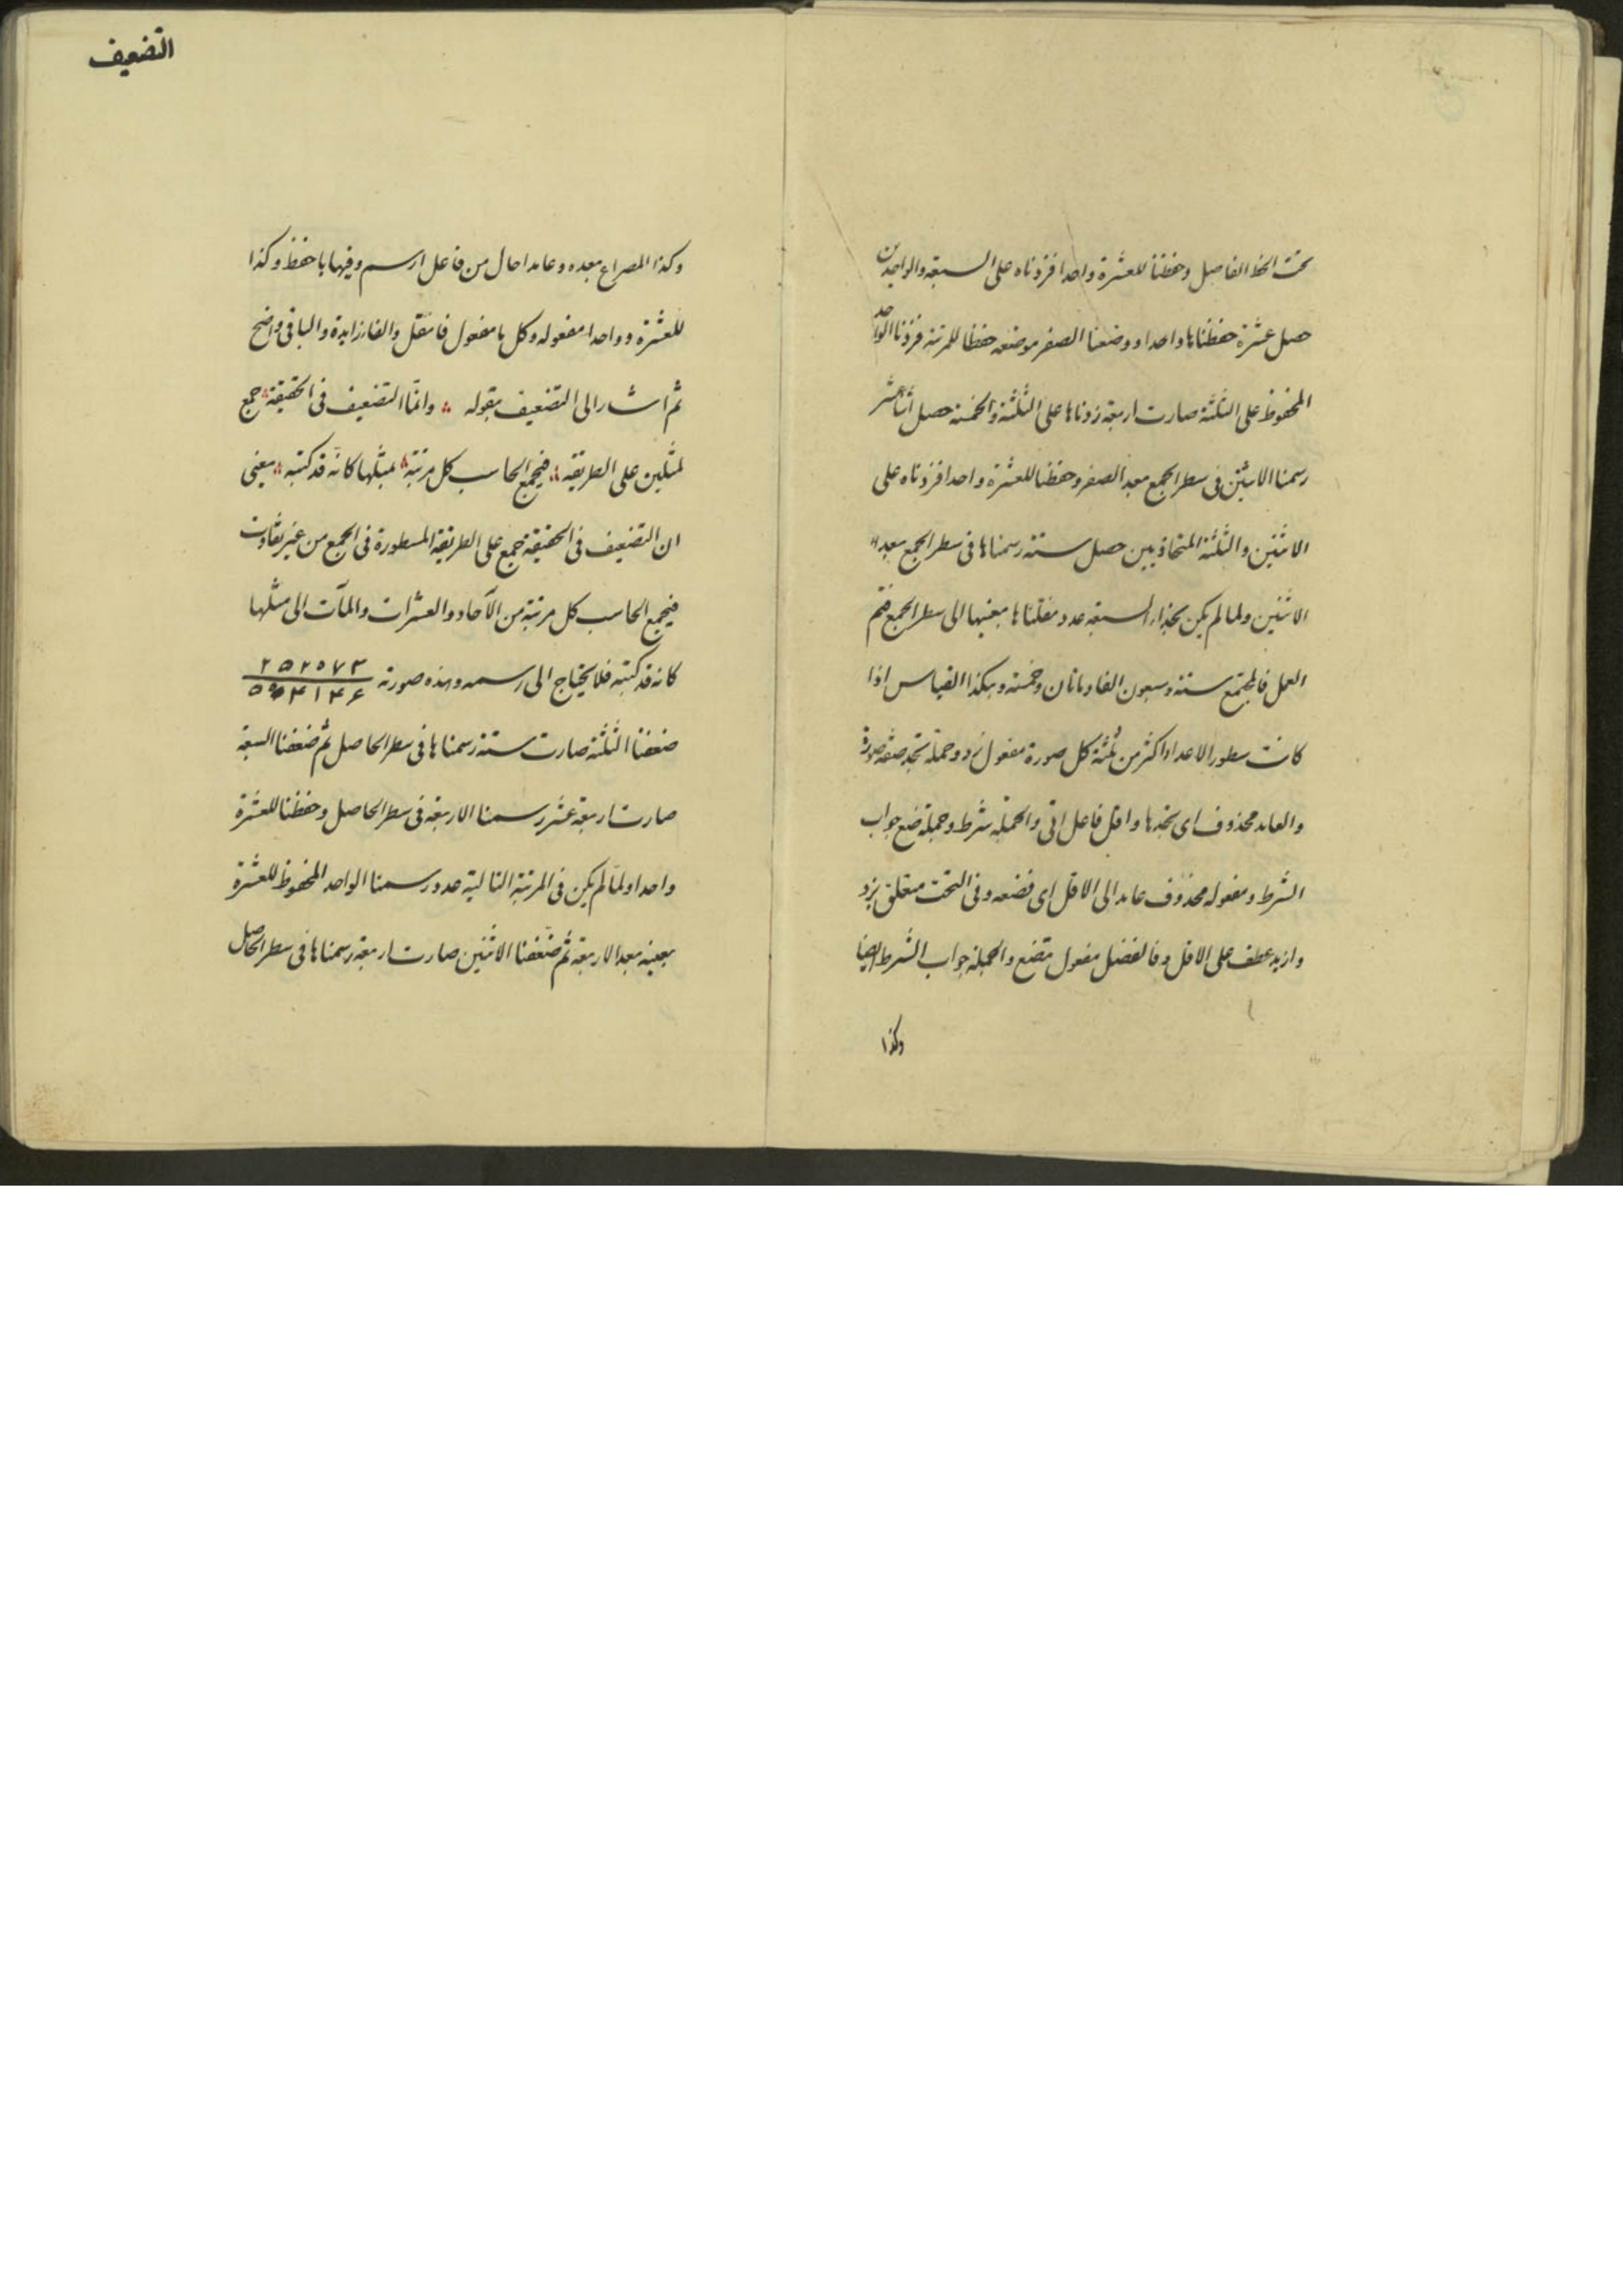 تحت الخط الفاصل وحفظنا للعشرة واحدا فزدناه على السبعة والواحدين
حصل عشرة حفظناها واحدا ووضعنا الصفر موضعه حفظا للمرتبة فزدنا الواحد
المحفوظ على الثلثة صارت اربعة زدناها على الثلثة والخمسة حصل اثنا عشر
رسمنا الاثنين فى سطر الجمع بعد الصفر وحفظنا للعشرة واحدا فزدناه على
الاثنين والثلثة المتحاذيين حصل ستة رسمناها فى سطر الجمع بعد
الاثنين ولما لم يكن بحذاء السبعة عدد نقلناها بعينها الى سطر الجمع فتم
العمل فالمجتمع ستة وسبعون الفا ومائتان وخمسة وهكذا القياس اذا
كانت سطور الاعداد اكثر من ثلثة كل صورة مفعول زد وجملة تجد صفة صورة
والعايد محذوف اى تجدها واقل فاعل اتى والجملة شرط وجملة ضع جواب
الشرط ومفعوله محذوف عايد الى الاقل اى فضعه وفى التحت متعلق بزد
وازيد عطف على الاقل وفالفضل مفعول فضع والجملة جواب الشرط ايضا
وكذا
التضعيف
وكذا المصراع بعده وعامدا حال من فاعل ارسم وفيها باحفظ وكذا
للعشرة وواحدا مفعوله وكل با مفعول فانقل والفا زايدة والباقى واضح
ثم اشار الى التضعيف بقوله وانما التضعيف فى الحقيقة جمع
لمثلين على الطريقه فيجمع الحاسب كل مرتبة بمثلها كانه قد كتبه يعنى
ان التضعيف فى الحقيقة جمع على الطريقة المسطورة فى الجمع من غير تفاوت
فيجمع الحاسب كل مرتبة من الآحاد والعشرات والمآت الى مثلها
كانه قد كتبه فلا يحتاج الى رسمه وهذه صورته ٢٥٢٠٧٣
٥٠۴١۴۶
ضعفنا الثلثة صارت ستة رسمناها فى سطر الحاصل ثم ضعفنا السبعة
صارت اربعة عشر رسمنا الاربعة فى سطر الحاصل وحفظنا للعشرة
واحدا ولما لم يكن فى المرتبة التالية عدد رسمنا الواحد المحفوظ للعشرة
بعينه بعد الاربعة ثم ضعفنا الاثنين صارت اربعة رسمناها فى سطر الحاصل